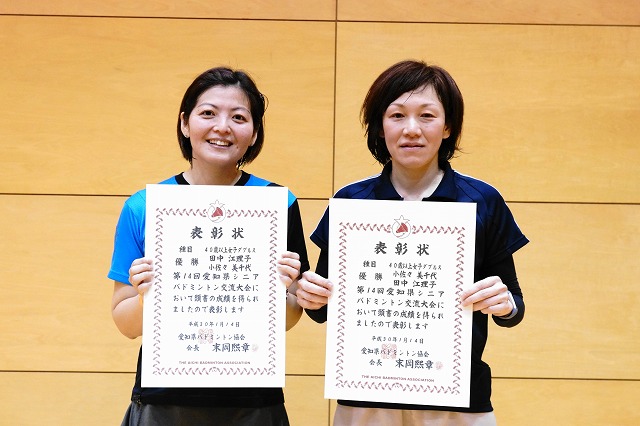 表彰状
種目 40歳以上女子ダブルス
優勝 田中 江理子
小佐々 美千代
第14回愛知県シニア
バドミントン交流大会に
おいて頭書の成績を得られ
ましたので表彰します
平成30年1月14日
愛知県バドミントン協会
会長 末岡熙章
THE AICHI BADMINTON ASSOCIATION
表彰状
種目 40歳以上女子ダブルス
優勝 小佐々 美千代
田中 江理子
第14回愛知県シニア
バドミントン交流大会に
おいて頭書の成績を得られ
ましたので表彰します
平成30年1月14日
愛知県バドミントン協会
会長 末岡熙章
THE AICHI BADMINTON ASSOCIATION